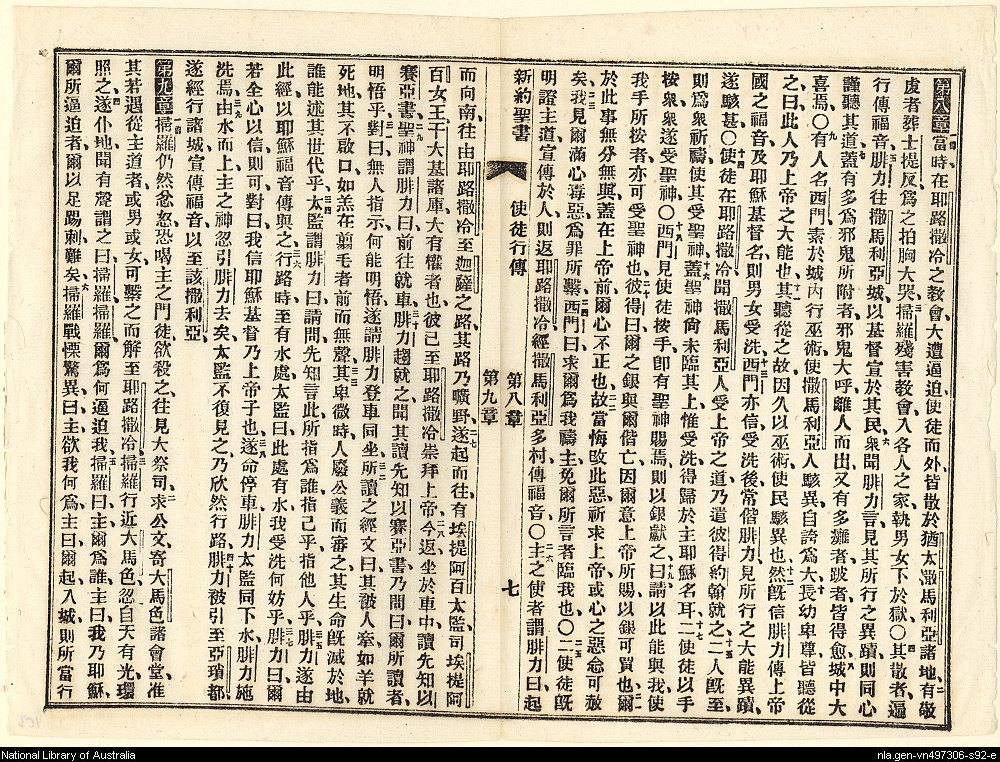 第八章當時在耶路撒冷之教會大遭逼迫使徒而外皆散於猶太撒馬利亞諸地有敬
虔者葬士提反爲之拍胸大哭掃羅殘害教會入各人之家執男女下於獄〇其散者遍
行傳福音腓力往撒馬利亞城以基督宣於其民衆聞腓力言見其所行之異蹟則同心
謹聽其道蓋有多爲邪鬼所附者邪鬼大呼離人而出又有多癱者跛者皆得愈城中大
喜焉〇有人名西門素於城內行巫術使撒馬利亞人駭異自誇爲大長幼卑尊皆聽從
之曰此人乃上帝之大能也其聽從之故因久以巫術使民駭異也然旣信腓力傳上帝
國之福音及耶穌基督名則男女受洗西門亦信受洗後常偕腓力見所行之大能異蹟
遂駭甚〇使徒在耶路撒冷聞撒馬利亞人受上帝之道乃遣彼得約翰就之二人旣至
則爲衆祈禱使其受聖神蓋聖神尙未臨其上惟受洗得歸於主耶穌名耳二使徒以手
按衆衆遂受聖神〇西門見使徒按手卽有聖神賜焉則以銀獻之曰請以此能與我使
我手所按者亦可受聖神也彼得曰爾之銀與爾偕亡因爾意上帝所賜以銀可買也爾
於此事無分無與蓋在上帝前爾心不正也故當悔改此惡祈求上帝或心之惡念可赦
矣我見爾滿心毒惡爲罪所繫西門曰求爾爲我禱主免爾所言者臨我也〇二使徒旣
明證主道宣傳於人則返耶路撒冷經撒馬利亞多村傳福音〇主之使者謂腓力曰起
新約聖書 使徒行傳 第八章 七
第九章
而向南往由耶路撒冷至迦薩之路其路乃曠野遂起而往有埃提阿百太監司埃提阿
百女王干大基諸庫大有權者也彼已至耶路撒冷崇拜上帝今返坐於車中讀先知以
賽亞書聖神謂腓力曰前往就車腓力趨就之聞其讀先知以賽亞書乃問曰爾所讀者
明悟乎對曰無人指示何能明悟遂請腓力登車同坐所讀之經文曰其被人牽如羊就
死地其不啟口如羔在翦毛者前而無聲其卑微時人廢公義而審之其生命旣滅於地
誰能述其世代乎太監謂腓力曰請問先知言此所指爲誰指己乎指他人乎腓力遂由
此經以耶穌福音傳與之行路時至有水處太監曰此處有水我受洗何妨乎腓力曰爾
若全心以信則可對曰我信耶穌基督乃上帝子也遂命停車腓力太監同下水腓力施
洗焉由水而上主之神忽引腓力去矣太監不復見之乃欣然行路腓力被引至亞瑣都
遂經行諸城宣傳福音以至該撒利亞
第九章掃羅仍然忿怒恐喝主之門徒欲殺之往見大祭司求公文寄大馬色諸會堂准
其若遇從主道者或男或女可繫之而解至耶路撒冷掃羅行近大馬色忽自天有光環
照之遂仆地聞有聲謂之曰掃羅掃羅爾爲何逼迫我掃羅曰主爾爲誰主曰我乃耶穌
爾所逼迫者爾以足踢刺難矣掃羅戰慄驚異曰主欲我何爲主曰爾起入城則所當行
National Library of Australia
nla.gen-vn497306-s92-e